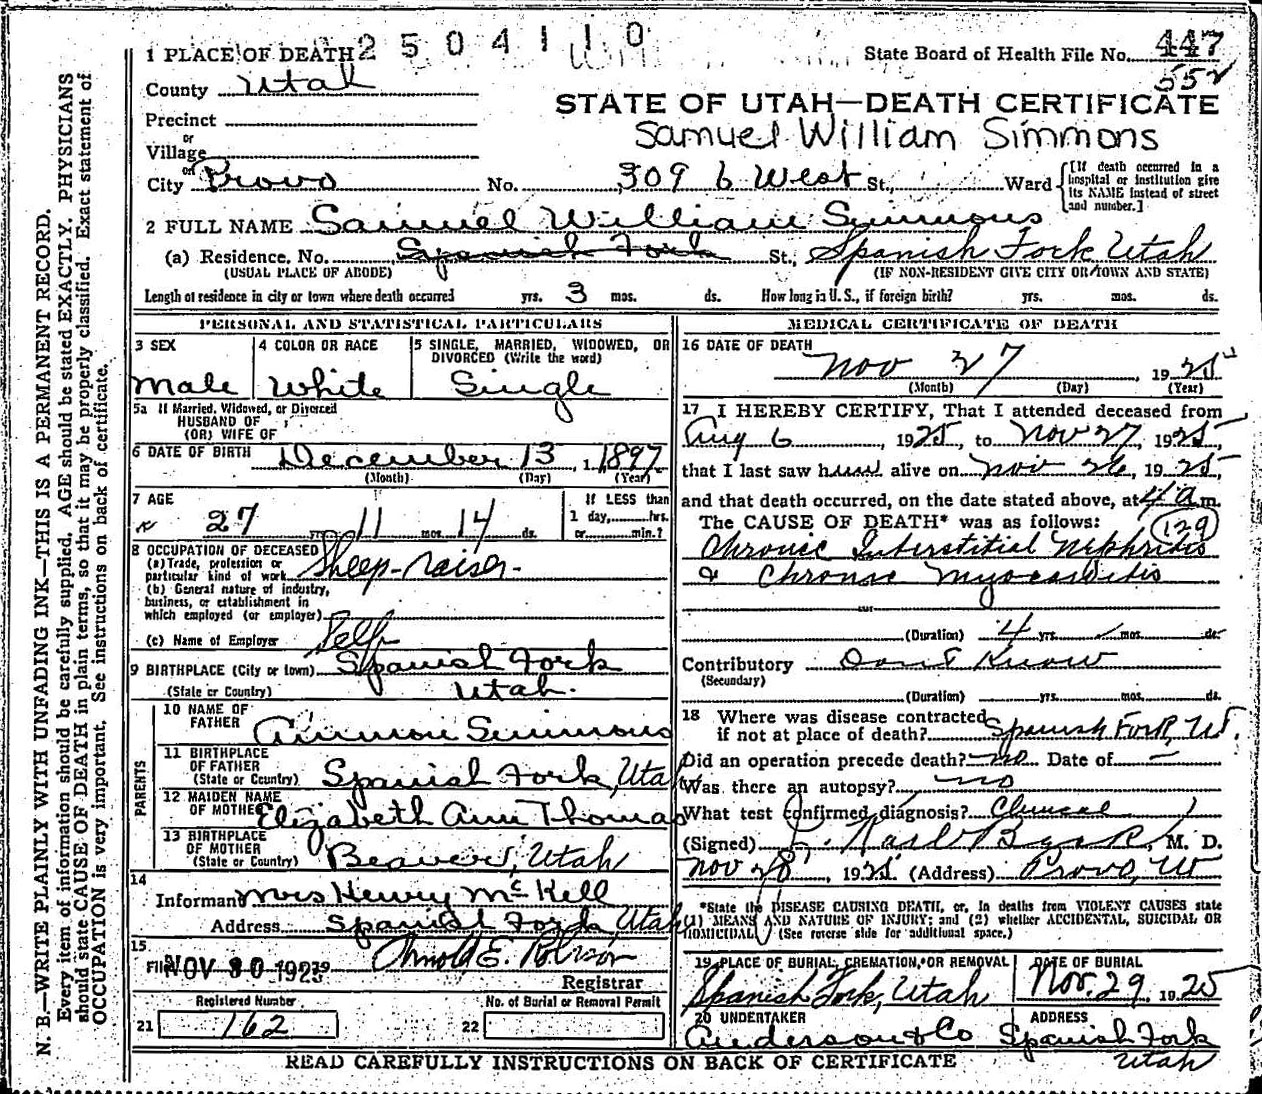 2504110
1 PLACE OF DEATH
State Board of Health File No. 447
552
County Utah
STATE OF UTAH—DEATH CERTIFICATE
Precinct
Samuel William Simmons
or
Village
or
City Provo No. 309 6 West St., Ward
[If death occurred in a hospital or institution give its NAME instead of street and number.]
2 FULL NAME Samuel William Simmons
(a) Residence. No. Spanish Fork St., Spanish Fork Utah
(USUAL PLACE OF ABODE) (IF NON-RESIDENT GIVE CITY OR TOWN AND STATE)
Length of residence in city or town where death occurred yrs. 3 mos. ds. How long in U.S., if foreign birth? yrs. mos. ds.
PERSONAL AND STATISTICAL PARTICULARS
3 SEX
Male
4 COLOR OR RACE
White
5 SINGLE, MARRIED, WIDOWED, OR
DIVORCED (Write the word)
Single
5a If Married, Widowed, or Divorced
HUSBAND OF
(OR) WIFE OF
6 DATE OF BIRTH December 13, 1897
(Month) (Day) (Year)
7 AGE
27 yrs. 11 mos. 14 ds.
If LESS than
1 day, hrs.
or min.?
8 OCCUPATION OF DECEASED
(a) Trade, profession or
particular kind of work Sheep-raiser
(b) General nature of industry,
business, or establishment in
which employed (or employer)
(c) Name of Employer Self
9 BIRTHPLACE (City or town) Spanish Fork
(State or Country) Utah.
PARENTS
10 NAME OF
FATHER Ammon Simmons
11 BIRTHPLACE
OF FATHER
(State or Country) Spanish Fork, Utah
12 MAIDEN NAME
OF MOTHER Elizabeth Ann Thomas
13 BIRTHPLACE
OF MOTHER
(State or Country) Beaver, Utah
14
Informant Mrs Henry McKell
Address Spanish Fork Utah
15
Filed NOV 30 192
Arnold E. Robison
Registrar
Registered Number
21 162
No. of Burial or Removal Permit
22
MEDICAL CERTIFICATE OF DEATH
16 DATE OF DEATH
Nov 27, 1925
(Month) (Day) (Year)
17 I HEREBY CERTIFY, That I attended deceased from
Aug 6, 1925, to Nov 27, 1925,
that I last saw him alive on Nov 26, 1925
and that death occurred, on the date stated above, at 4 a m.
The CAUSE OF DEATH* was as follows: 129
Chronic Interstitial Nephritis
& Chronic Myocarditis
(Duration) 4 yrs. mos. ds.
Contributory Don't Know
(Secondary)
(Duration) yrs. mos. ds.
18 Where was disease contracted
if not at place of death? Spanish Fork, Ut.
Did an operation precede death? no Date of —
Was there an autopsy? no
What test confirmed diagnosis? Clinical
(Signed) J. Karl Beck, M. D.
Nov 28, 1925 (Address) Provo, Ut
*State the DISEASE CAUSING DEATH, or, in deaths from VIOLENT CAUSES state
(1) MEANS AND NATURE OF INJURY; and (2) whether ACCIDENTAL, SUICIDAL OR
HOMICIDAL (See reverse side for additional space.)
19 PLACE OF BURIAL, CREMATION, OR REMOVAL
Spanish Fork, Utah
DATE OF BURIAL
Nov. 29, 1925
20 UNDERTAKER
Anderson & Co
ADDRESS
Spanish Fork
Utah
READ CAREFULLY INSTRUCTIONS ON BACK OF CERTIFICATE
N. B.—WRITE PLAINLY WITH UNFADING INK—THIS IS A PERMANENT RECORD.
Every item of information should be carefully supplied. AGE should be stated EXACTLY. PHYSICIANS
should state CAUSE OF DEATH in plain terms, so that it may be properly classified. Exact statement of
OCCUPATION is very important. See instructions on back of certificate.